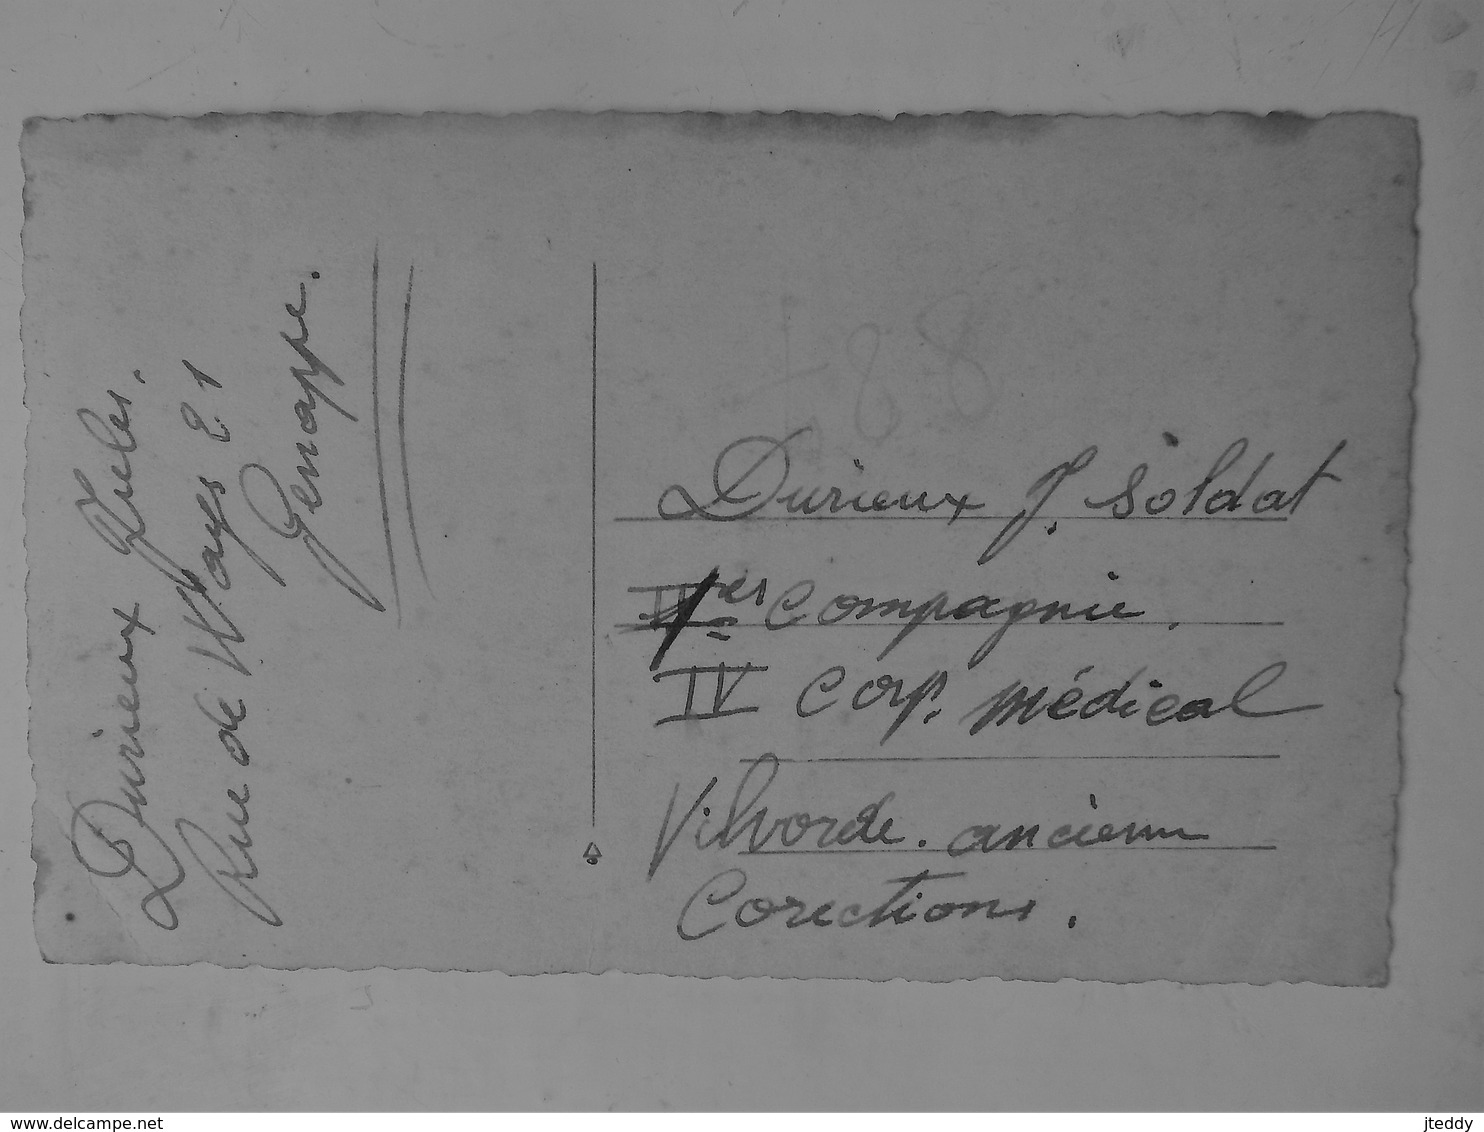 Durieux Jules.
Rue de Ways 21
Genappe.
788
Durieux J. soldat
1er Compagnie.
IV Corp. médical
Vilvorde. ancienn
Corections.
delcampe.net
jteddy